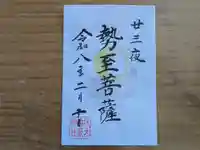 廿三夜
勢至菩薩
令和八年二月十一日